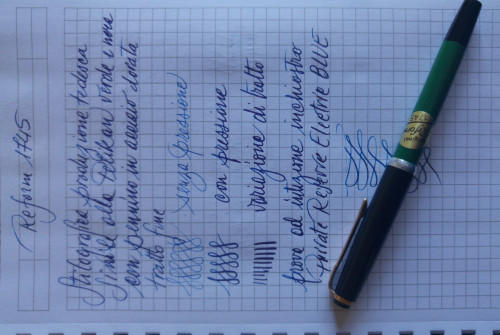 Reform 1745
Stilografica produzione tedesca
Simile alla Pelikan verde e nera
con pennino in acciaio dorato
tratto fine
senza pressione
con pressione
variazione di tratto
prova ad intuizione inchiostro
Private Reserve Electric BLUE